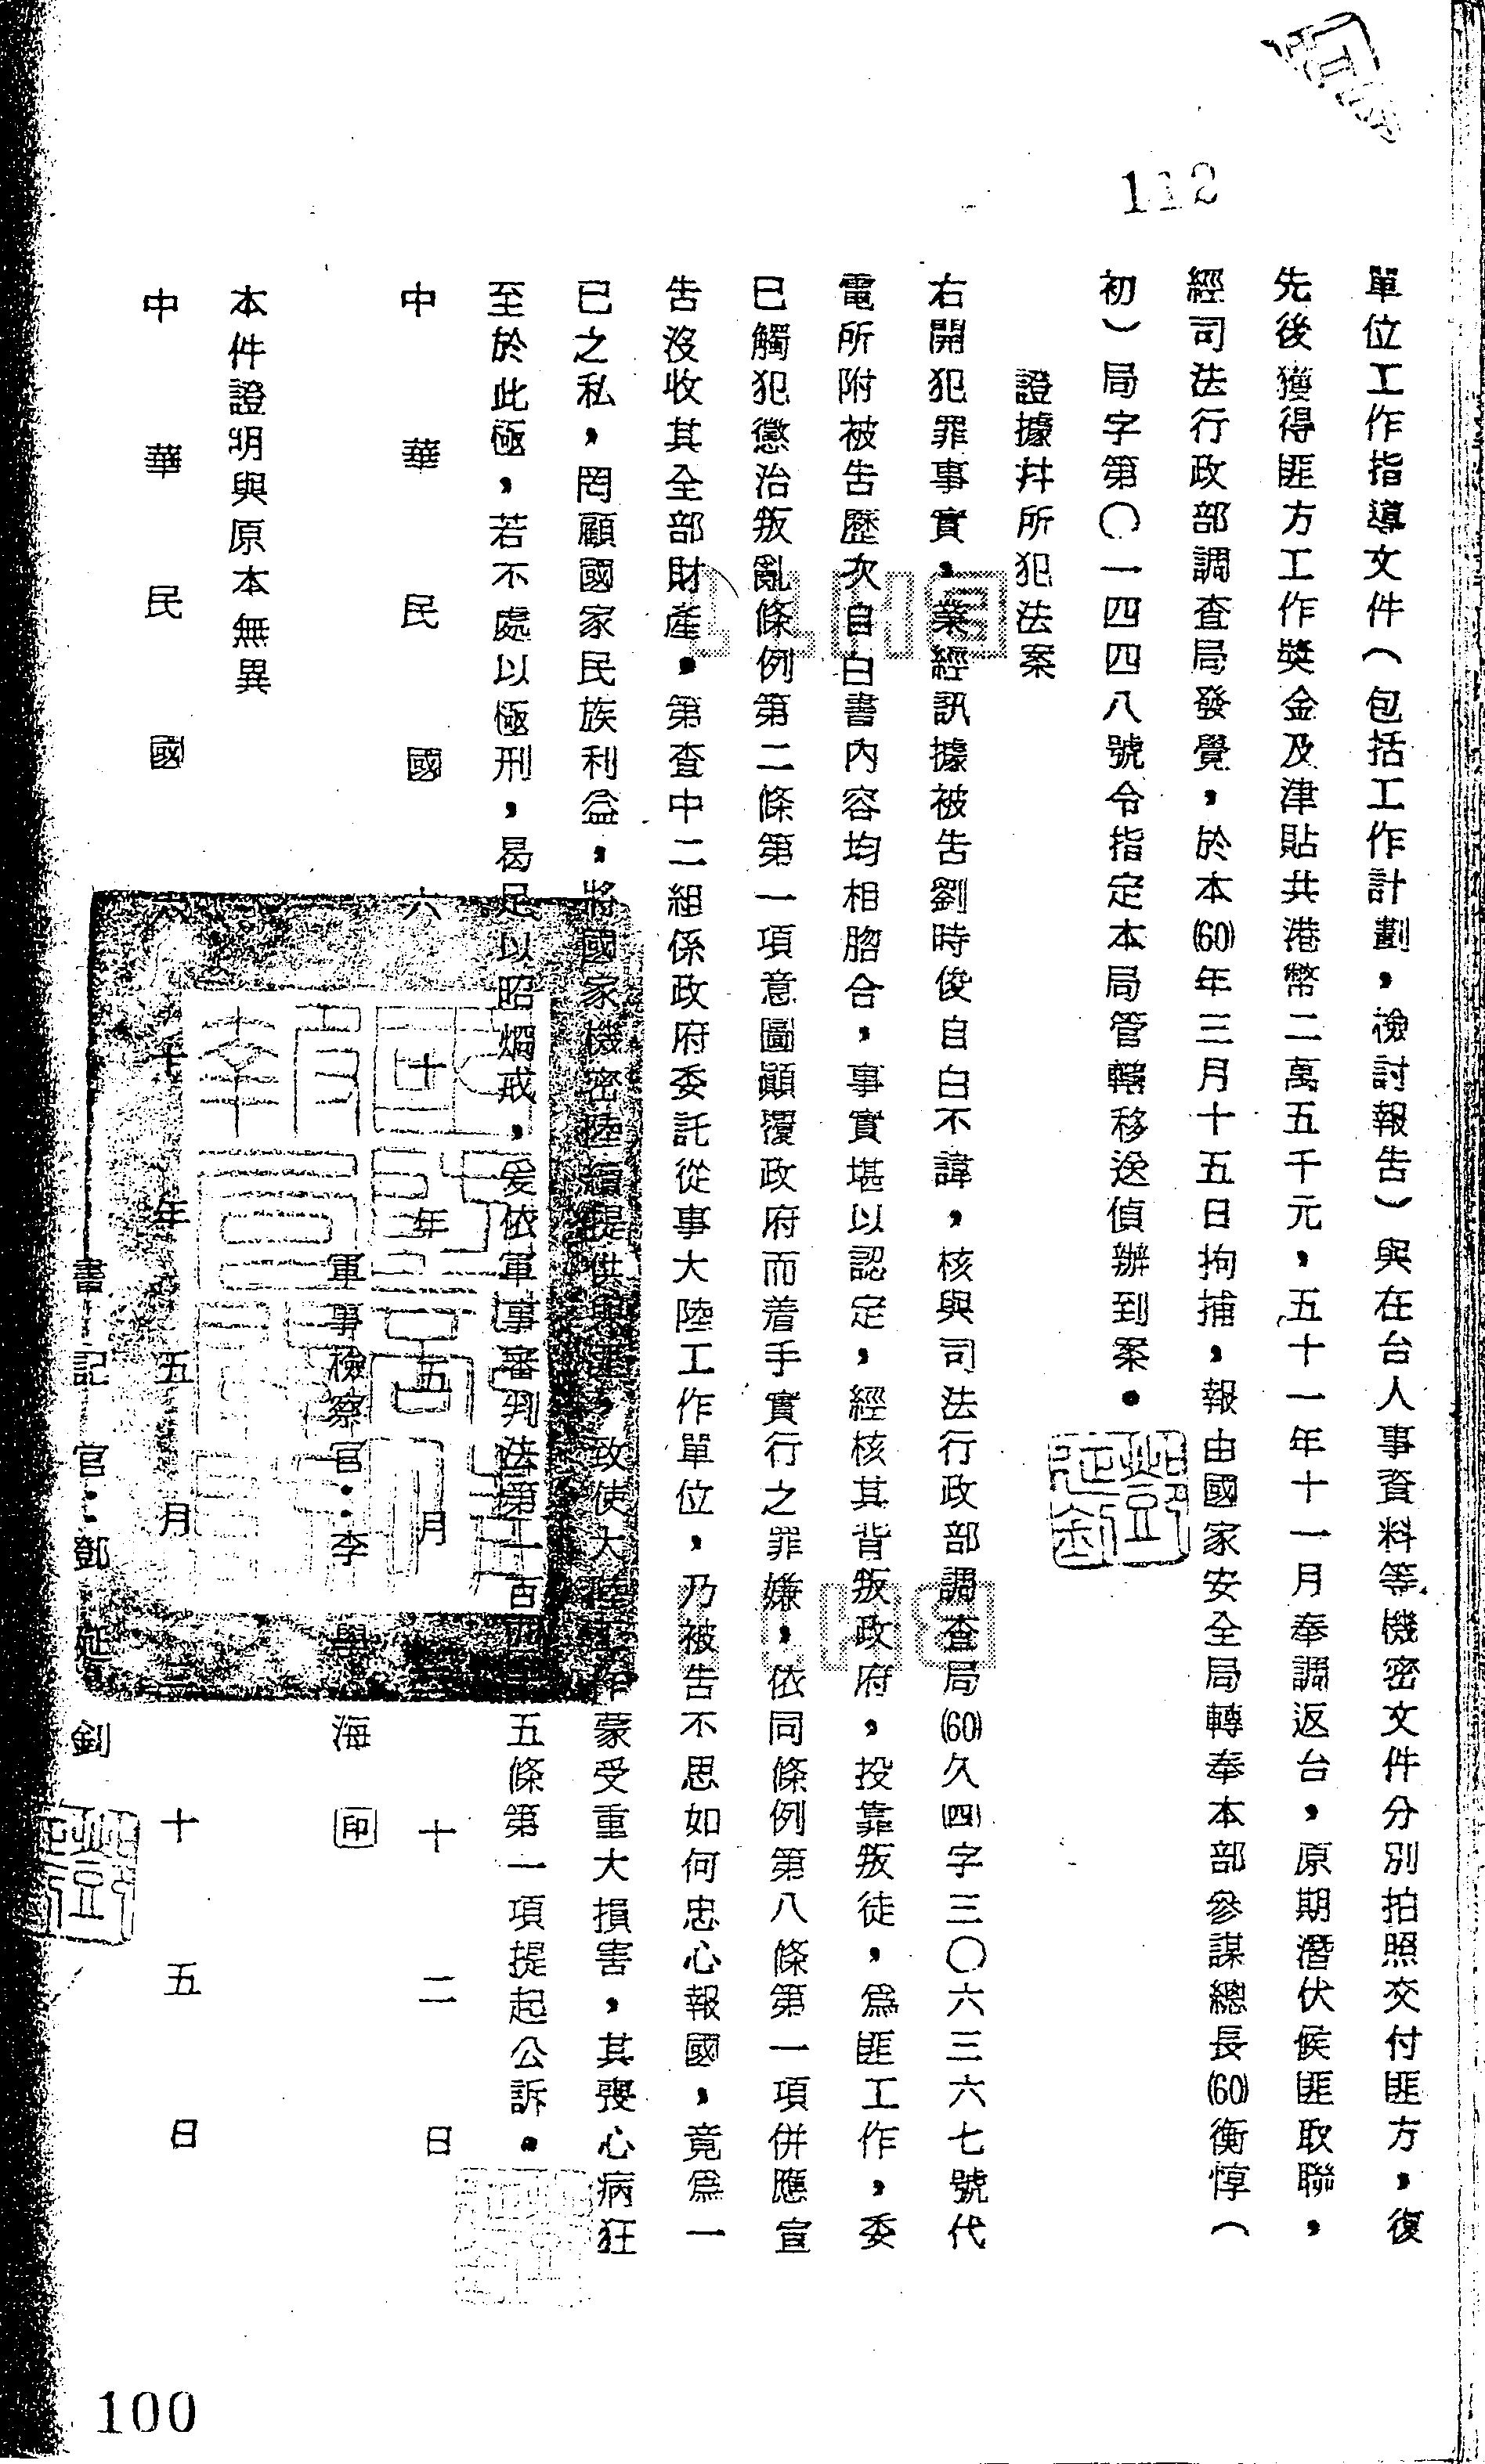 112
單位工作指導文件（包括工作計劃，檢討報告）與在台人事資料等機密文件分別拍照交付匪方，復
先後獲得匪方工作獎金及津貼共港幣二萬五千元，五十一年十一月奉調返台，原期潛伏候匪取聯，
經司法行政部調查局發覺，於本(60)年三月十五日拘捕，報由國家安全局轉奉本部參謀總長(60)衡惇（
初）局字第〇一四四八號令指定本局管轄移送偵辦到案。
證據幷所犯法案
右開犯罪事實，業經訊據被告劉時俊自白不諱，核與司法行政部調查局(60)久(四)字三〇六三六七號代
電所附被告歷次自白書內容均相脗合，事實堪以認定，經核其背叛政府，投靠叛徒，爲匪工作，委
已觸犯懲治叛亂條例第二條第一項意圖顚覆政府而着手實行之罪嫌，依同條例第八條第一項併應宣
告沒收其全部財產。第查中二組係政府委託從事大陸工作單位，乃被告不思如何忠心報國，竟爲一
已之私，罔顧國家民族利益，將國家機密陸續提供與匪，致使大陸工作蒙受重大損害，其喪心病狂
至於此極，若不處以極刑，曷足以昭烱戒，爰依軍事審判法第一百四十五條第一項提起公訴。
中華民國六十年五月十二日
軍事檢察官：李學海 印
本件證明與原本無異
中華民國六十年五月十五日
書記官：鄧延釗
100